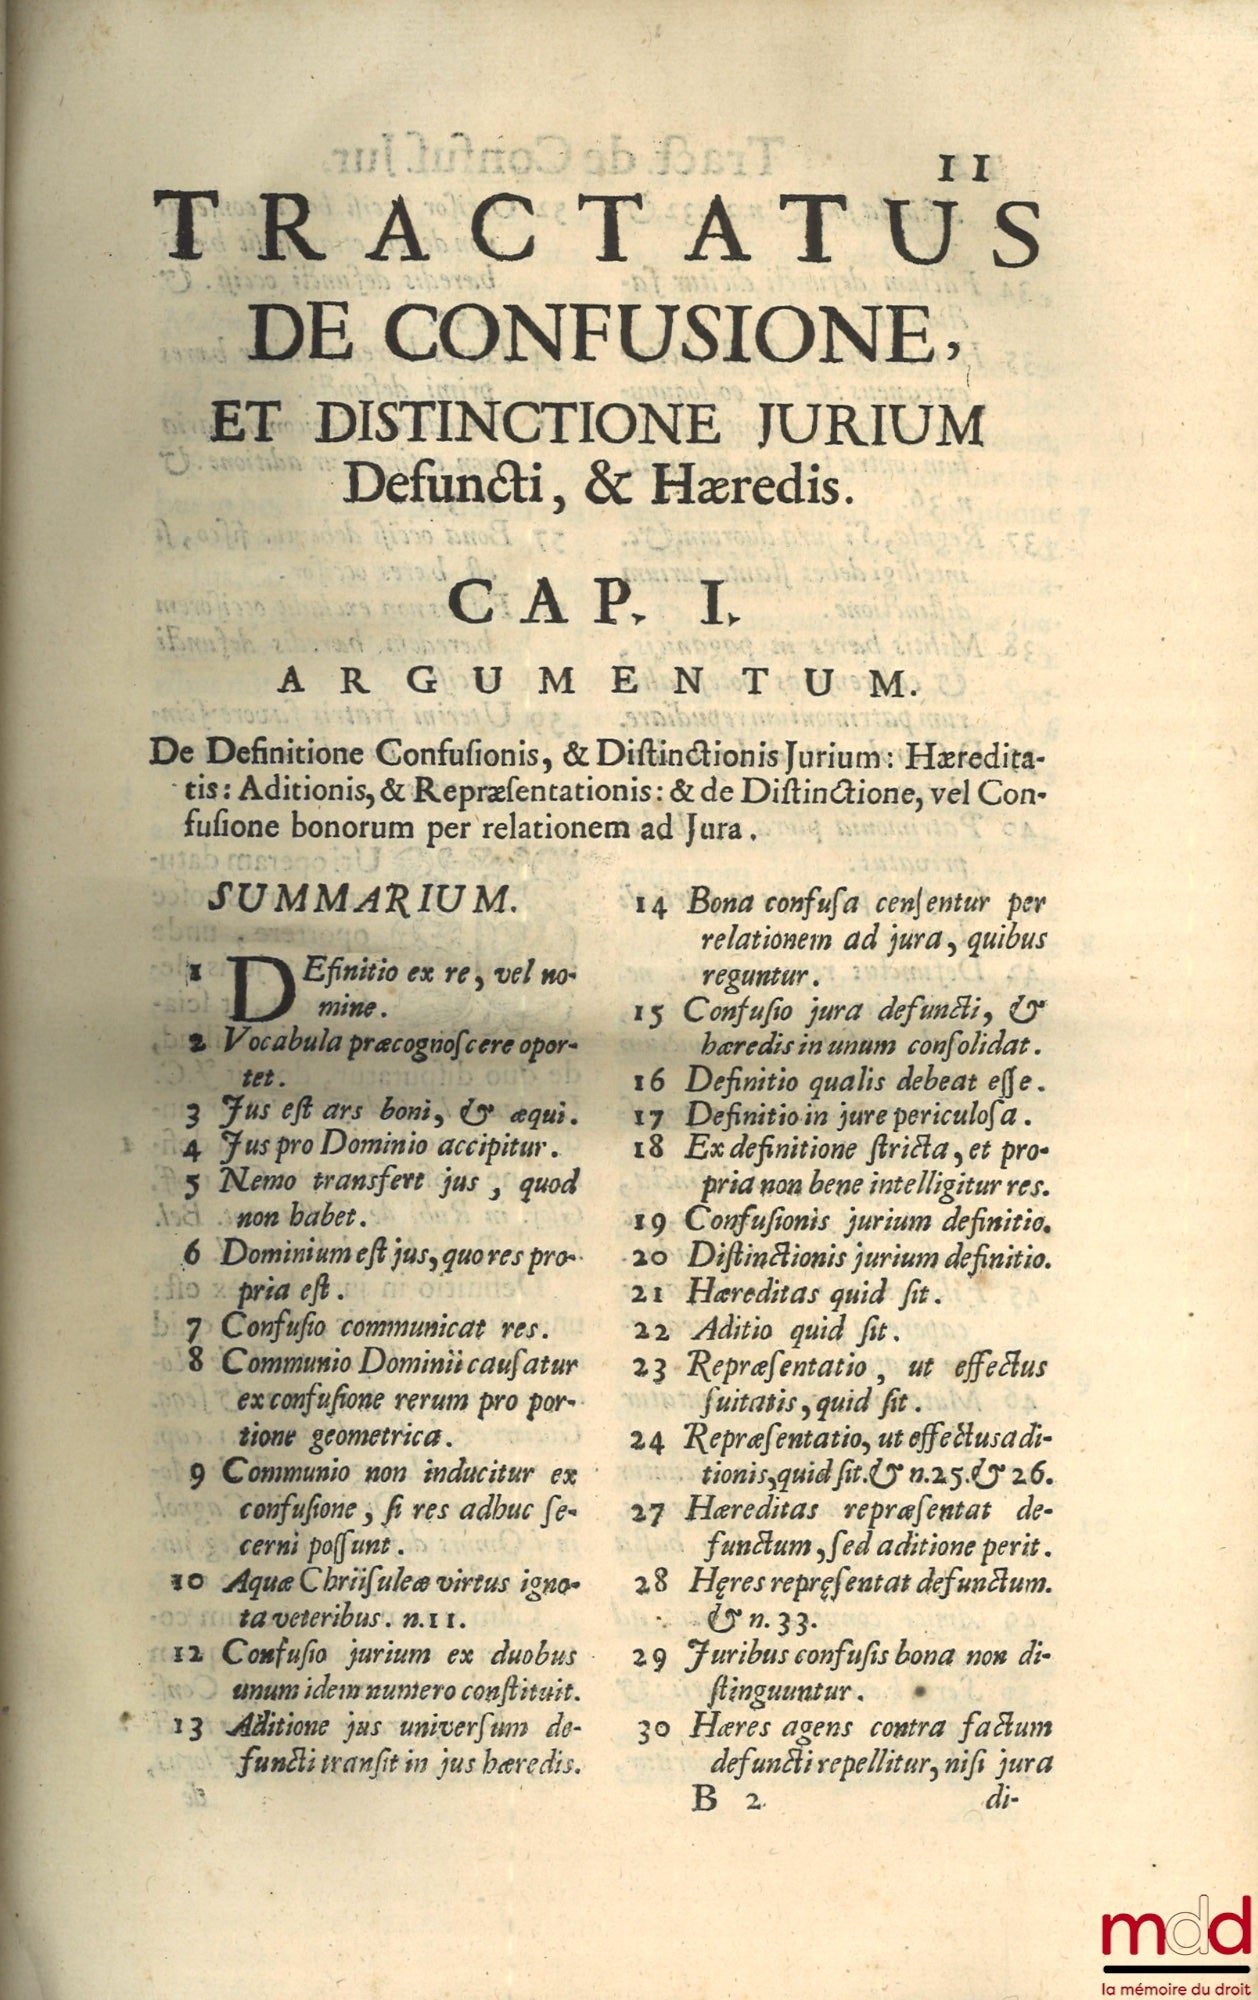 11
TRACTATUS
DE CONFUSIONE,
ET DISTINCTIONE JURIUM
Defuncti, & Hæredis.
CAP. I.
ARGUMENTUM.
De Definitione Confuſionis, & Diſtinctionis Jurium: Hæredita-
tis: Aditionis, & Repræſentationis: & de Diſtinctione, vel Con-
fuſione bonorum per relationem ad Jura.
SUMMARIUM.
1 DEfinitio ex re, vel no-
mine.
2 Vocabula præcognoſcere opor-
tet.
3 Jus eſt ars boni, & æqui.
4 Jus pro Dominio accipitur.
5 Nemo transfert jus, quod
non habet.
6 Dominium eſt jus, quo res pro-
pria eſt.
7 Confuſio communicat res.
8 Communio Dominii cauſatur
ex confuſione rerum pro por-
tione geometrica.
9 Communio non inducitur ex
confuſione, ſi res adhuc ſe-
cerni poſſunt.
10 Aquæ Chriiſuleæ virtus igno-
ta veteribus. n.11.
12 Confuſio jurium ex duobus
unum idem numero conſtituit.
13 Aditione jus univerſum de-
functi tranſit in jus hæredis.
14 Bona confuſa cenſentur per
relationem ad jura, quibus
reguntur.
15 Confuſio jura defuncti, &
hæredis in unum conſolidat.
16 Definitio qualis debeat eſſe.
17 Definitio in jure periculoſa.
18 Ex definitione ſtricta, et pro-
pria non bene intelligitur res.
19 Confuſionis jurium definitio.
20 Diſtinctionis jurium definitio.
21 Hæreditas quid ſit.
22 Aditio quid ſit.
23 Repræſentatio, ut effectus
ſuitatis, quid ſit.
24 Repræſentatio, ut effectus adi-
tionis, quid ſit. & n.25. & 26.
27 Hæreditas repræſentat de-
functum, ſed aditione perit.
28 Hęres repręſentat defunctum.
& n. 33.
29 Juribus confuſis bona non di-
ſtinguuntur.
30 Hæres agens contra factum
defuncti repellitur, niſi jura
B 2 di-
mdd
la mémoire du droit